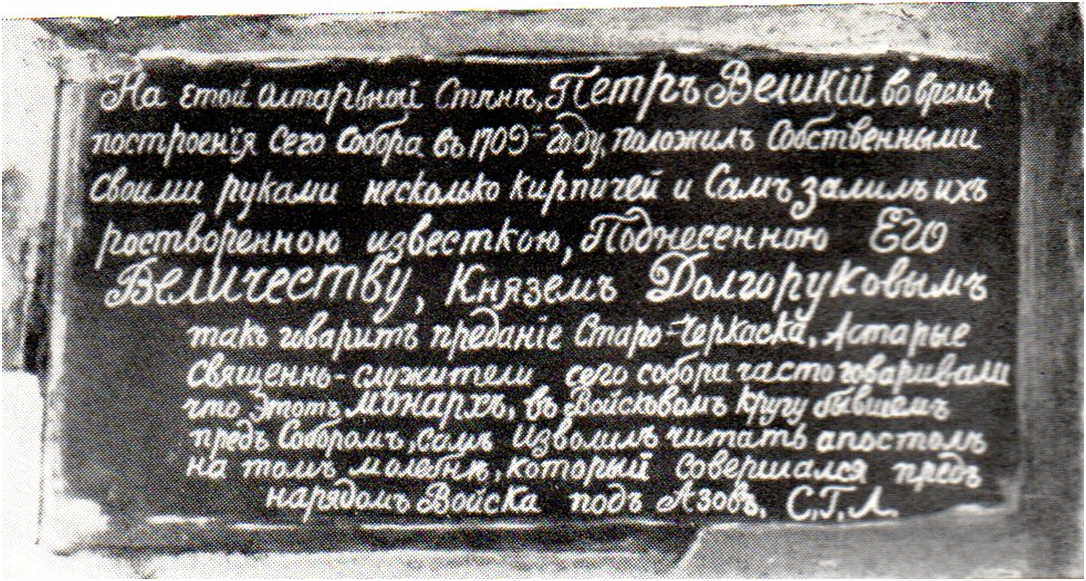 На етой олтарьной Стѣнѣ, Петръ Великій во время
построенія Сего Собора въ 1709= году, положилъ Собственными
своими руками несколько кирпичей и Самъ залилъ ихъ
ростворенною известкою, Поднесенною ЕГО
Величеству, Княземъ Долгоруковымъ
такъ говоритъ преданіе Старо-Черкаска, Астарые
священнь-служители сего собора часто говаривали
что Этотъ монархъ, въ Войсковомъ кругу бывшемъ
предъ Соборомъ, самъ Изволилъ читать апостолъ
на томъ молебнѣ, который совершался предъ
нарядомъ Войска подъ Азовъ. С.Г.Л.